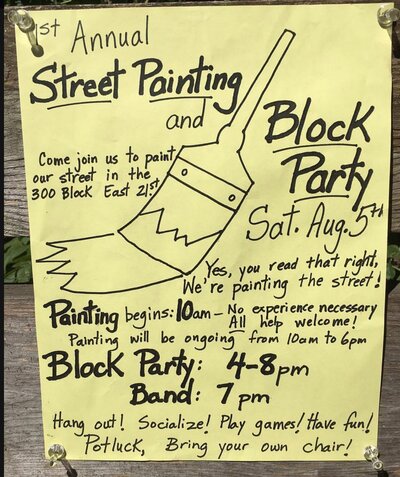 1st Annual
Street Painting
and
Block
Party
Come join us to paint
our street in the
300 Block East 21st
Sat. Aug. 5th
Yes, you read that right,
We're painting the street!
Painting begins: 10am – No experience necessary
All help welcome!
Painting will be ongoing from 10am to 6pm
Block Party: 4-8pm
Band: 7pm
Hang out! Socialize! Play games! Have fun!
Potluck, Bring your own chair!